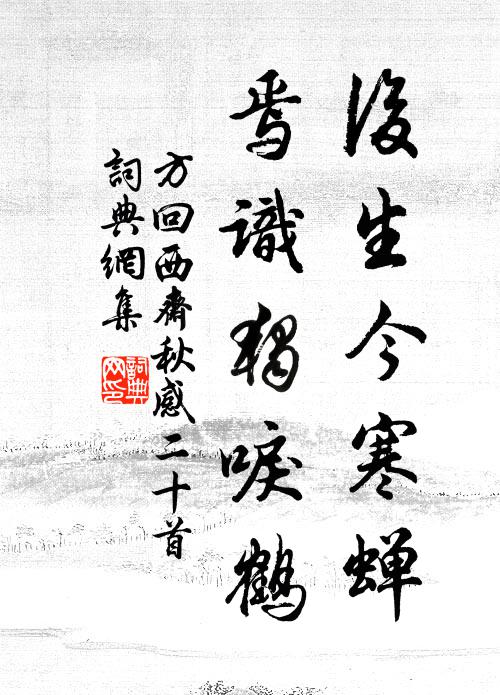 後生今寒蝉
焉識獨唳鶴
方回西齋秋感二十首
詞典網集
詞典
网印